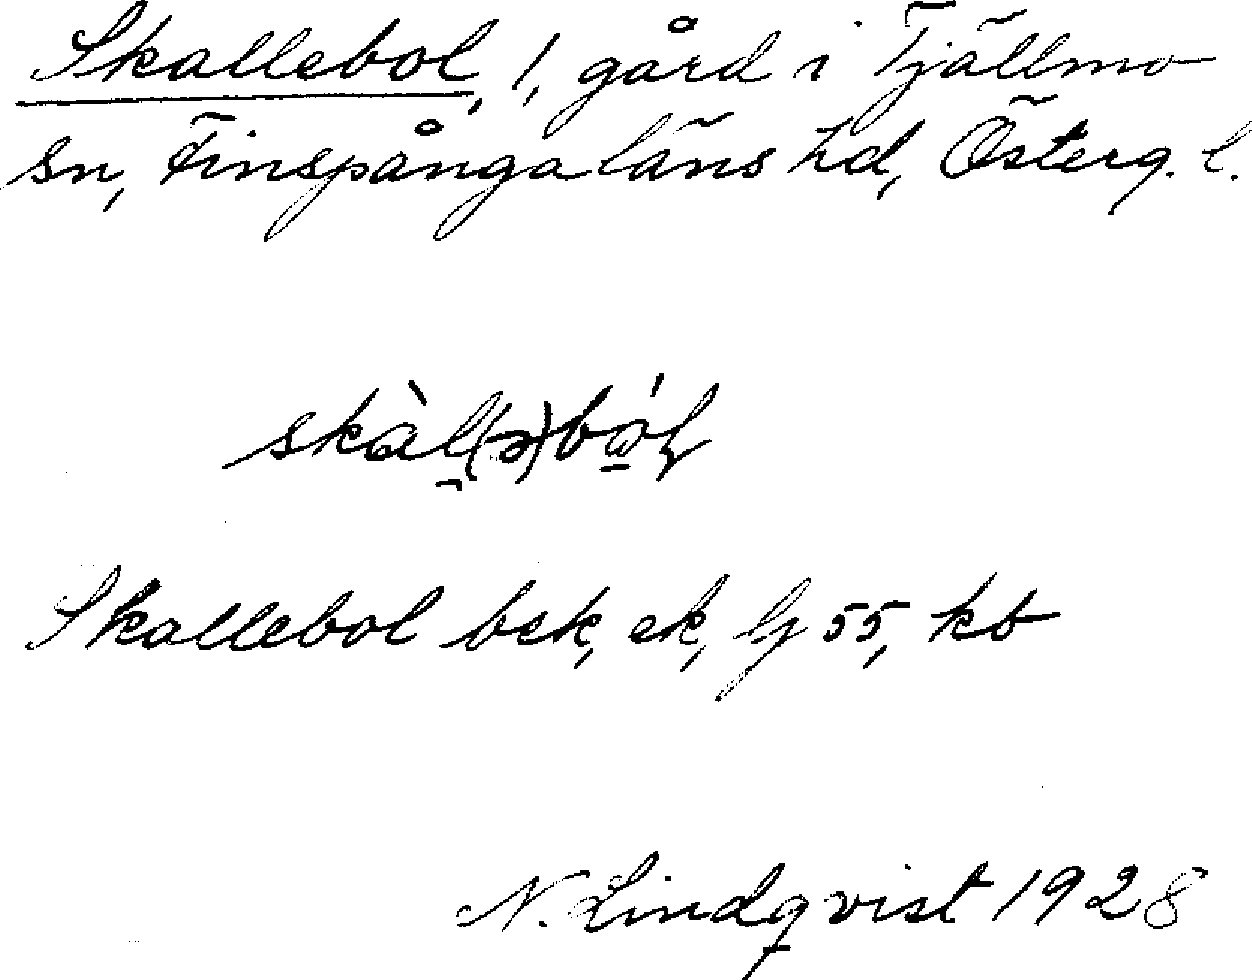 Skallebol, 1, gård i Tjällmo
sn, Finspånga läns hd, Österg. l.
skàl(ə)ból
Skallebol bek, ek, lj 55, kb
N. Lindqvist 1928